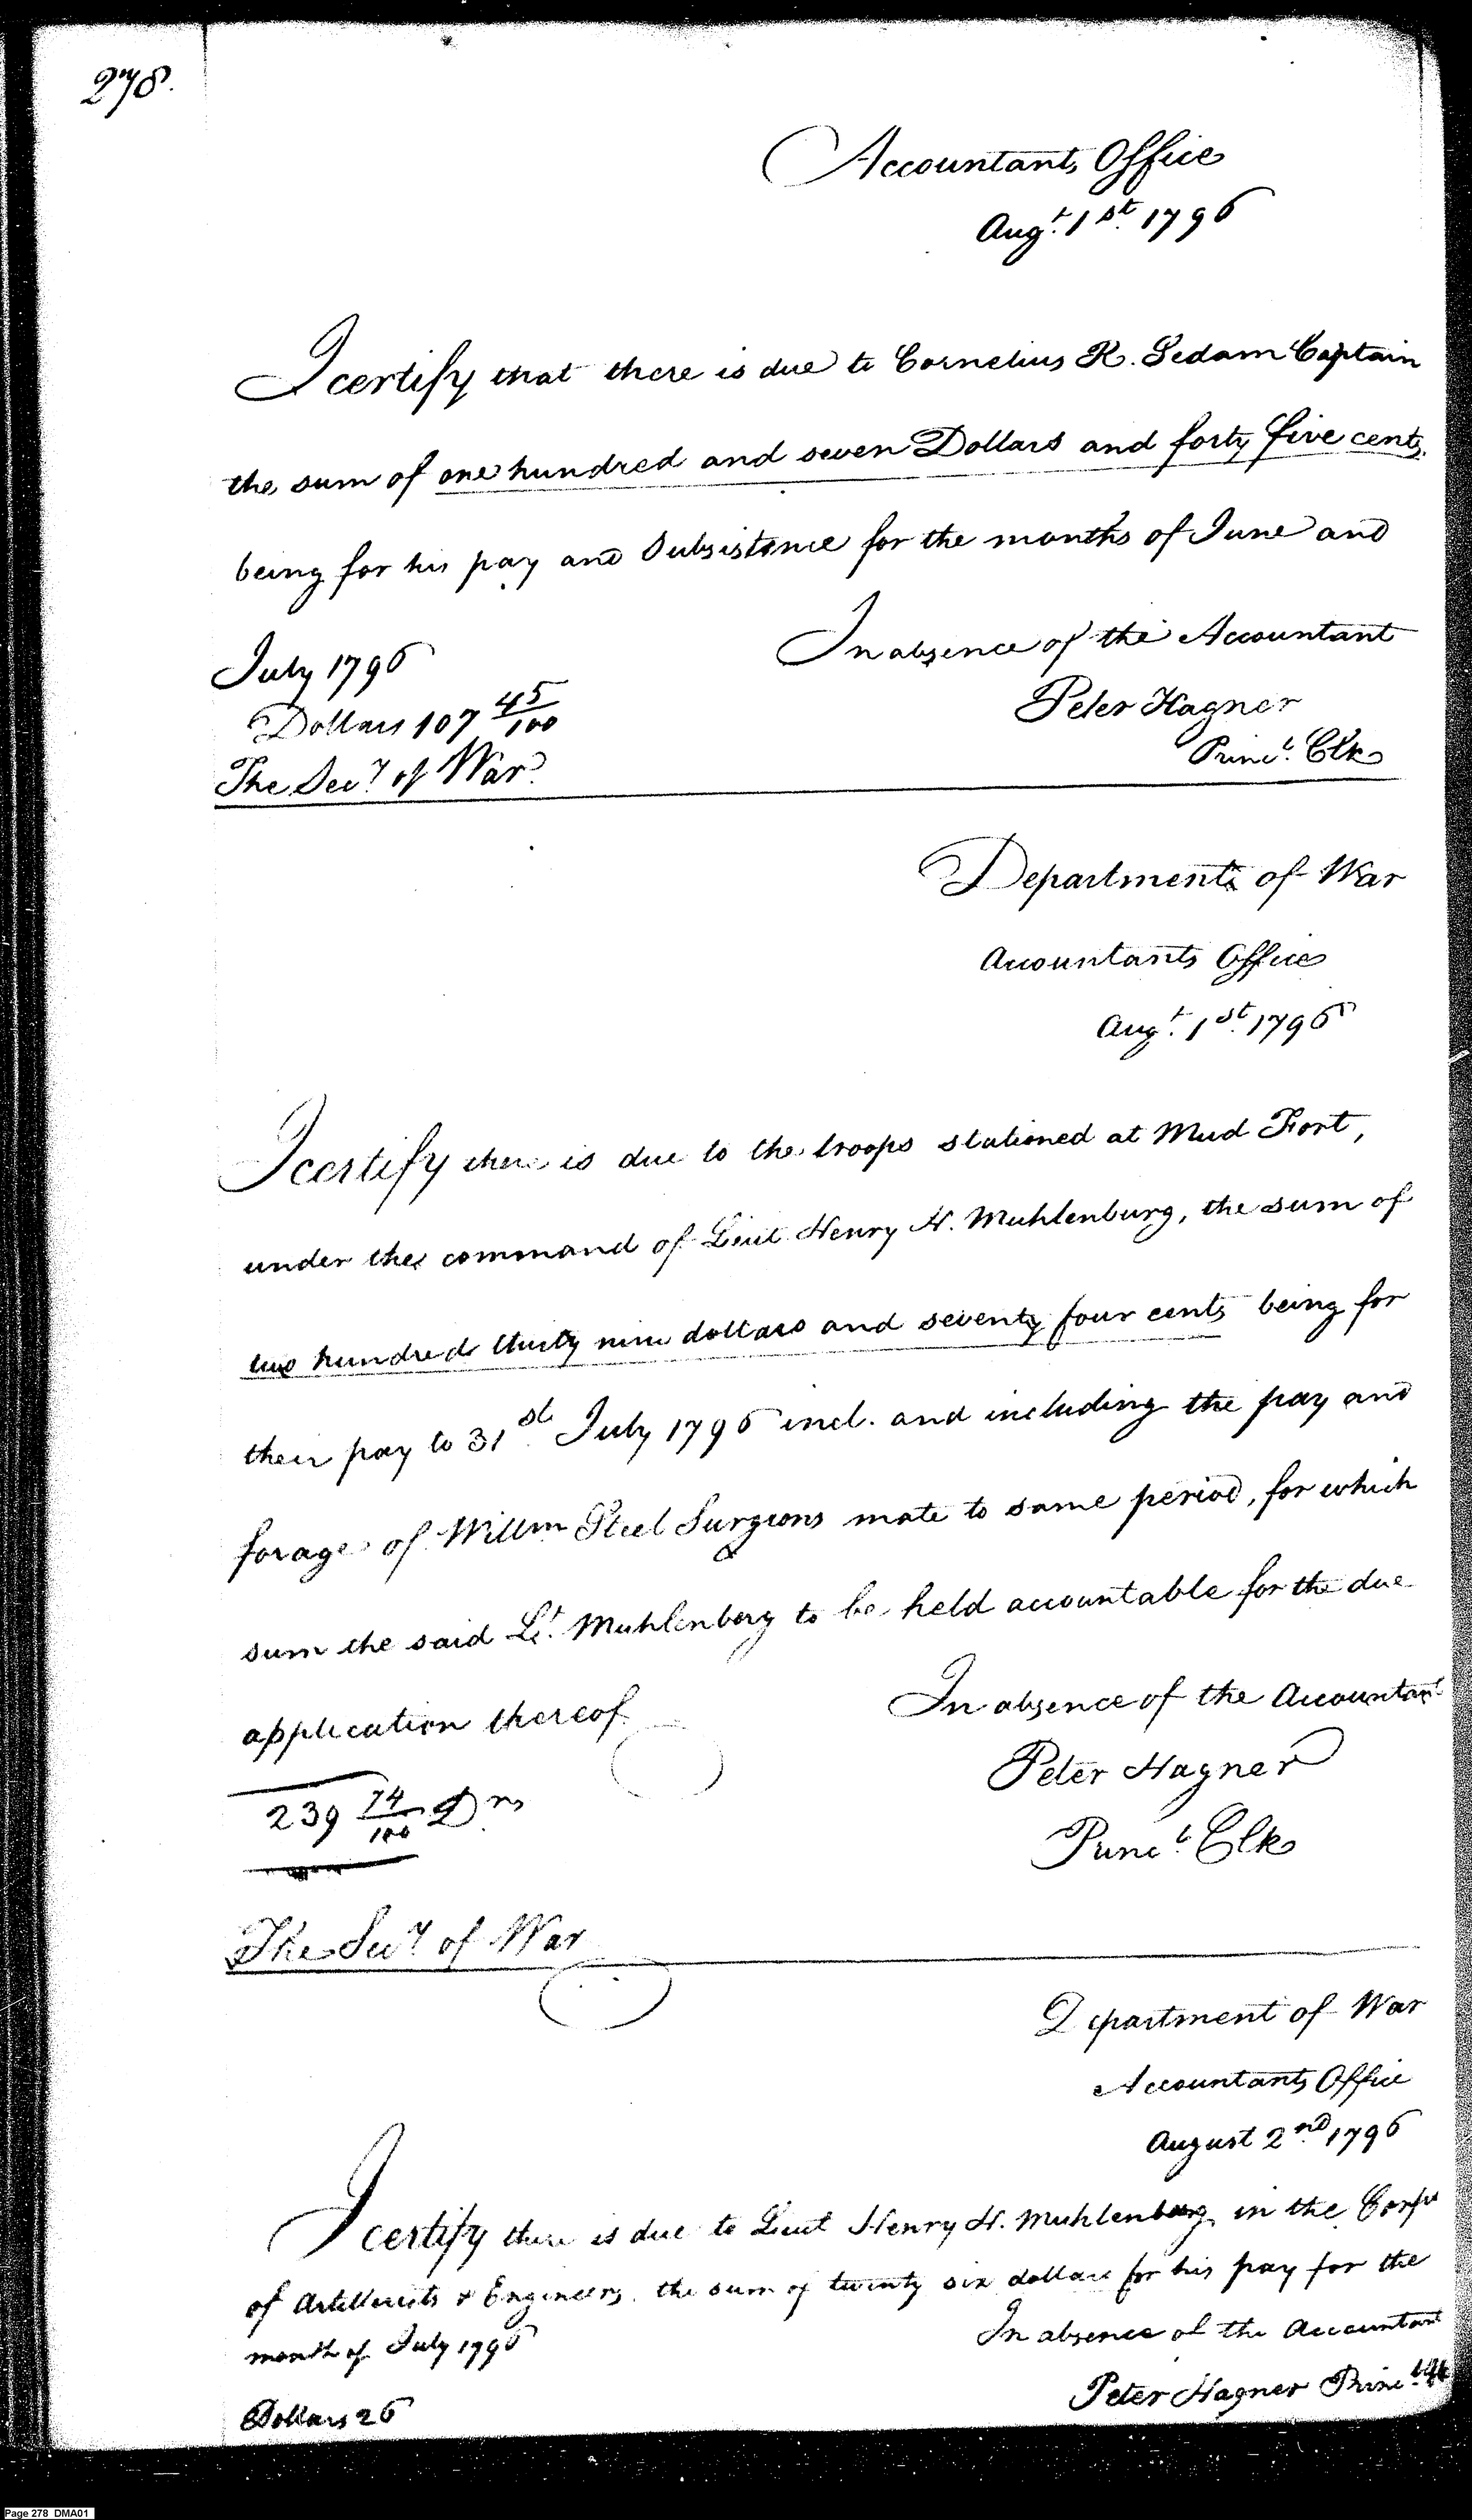 278.
Accountants Office
Augt. 1st. 1796
I certify that there is due to Cornelius R. Sedam Captain
the sum of one hundred and seven Dollars and forty five cents,
being for his pay and Subsistence for the months of June and
July 1796
In absence of the Accountant
Dollars 107 45/100
Peter Hagner
Princl. Clk
The Secy. of War
Department of War
Accountants Office
Augt. 1st. 1796
I certify there is due to the troops stationed at Mud Fort,
under the command of Lieut Henry H. Muhlenburg, the sum of
two hundred thirty nine dollars and seventy four cents being for
their pay to 31st. July 1796 incl. and including the pay and
forage of Willm Steel Surgeons mate to same period, for which
sum the said Lt. Muhlenberg to be held accountable for the due
application thereof
In absence of the Accountant
Peter Hagner
239 74/100 Drs
Princl. Clk
The Secy. of War
Department of War
Accountants Office
August 2nd. 1796
I certify there is due to Lieut Henry H. Muhlenburg in the Corps
of Artillerists & Engineers, the sum of twenty six dollars for his pay for the
month of July 1796
In absence of the Accountant
Peter Hagner Princl. Clk
Dollars 26
Page 278 DMA01